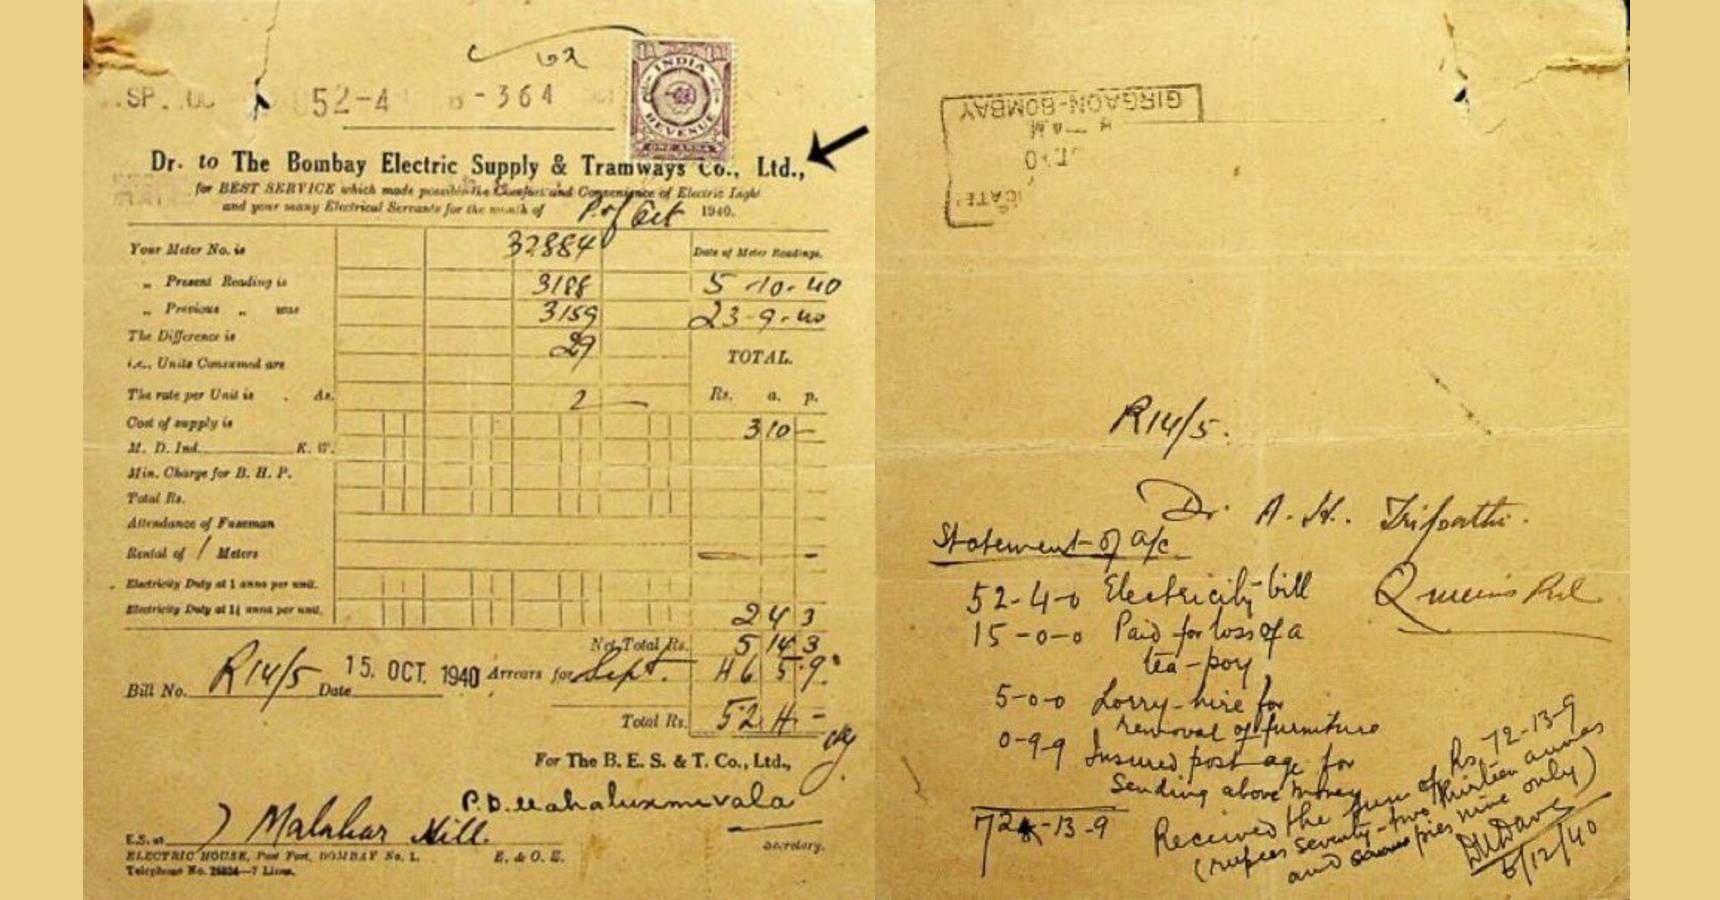 52-4 B-364
INDIA
REVENUE
ONE ANNA
Dr. to The Bombay Electric Supply & Tramways Co., Ltd.,
for BEST SERVICE which made possible the Comfort and Convenience of Electric Light
and your many Electrical Servants for the month of P. of Oct 1940.
Your Meter No. is 32884 Date of Meter Readings.
„ Present Reading is 3188 5-10-40
„ Previous „ was 3159 23-9-40
The Difference is 29
i.e., Units Consumed are TOTAL.
The rate per Unit is . As. 2 — Rs. a. p.
Cost of supply is 3 10 —
M. D. Ind. K. W.
Min. Charge for B. H. P.
Total Rs.
Attendance of Fuseman
Rental of / Meters — —
Electricity Duty at 1 anna per unit.
Electricity Duty at 1¼ annas per unit. 2 4 3
Net Total Rs. 5 14 3
Bill No. R14/5 Date 15. OCT. 1940 Arrears for Sept. 46 5 9
Total Rs. 52 4 -
For The B. E. S. & T. Co., Ltd.,
P.D. Mahaluxmivala
Secretary.
E.S. at Malabar Hill.
ELECTRIC HOUSE, Post Fort, BOMBAY No. 1. E. & O. E.
Telephone No. —7 Lines.
GIRGAON-BOMBAY
R14/5.
Dr. A. H. Tripathi.
Queens Rd.
Statement of a/c
52-4-0 Electricity bill
15-0-0 Paid for loss of a
tea-poy
5-0-0 Lorry-hire for
removal of furniture
0-9-9 Insured postage for
Sending above money
72-13-9
Received the sum of Rs. 72-13-9
(rupees seventy-two thirteen annas
and pies nine only)
5/12/40